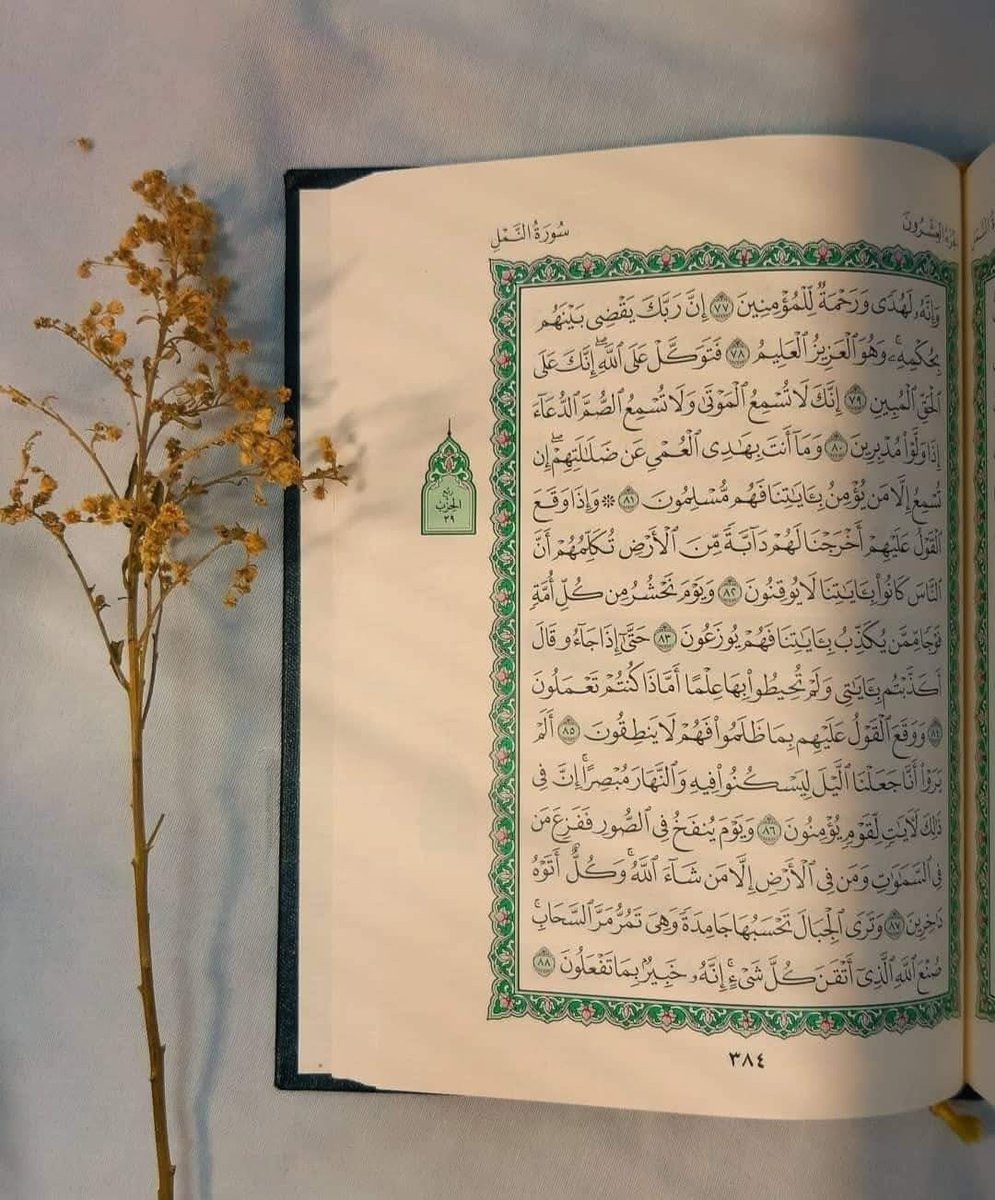 سُورَةُ النَّمْلِ
وَإِنَّهُۥ لَهُدًى وَرَحْمَةٌ لِّلْمُؤْمِنِينَ ٧٧ إِنَّ رَبَّكَ يَقْضِى بَيْنَهُم
بِحُكْمِهِۦ وَهُوَ ٱلْعَزِيزُ ٱلْعَلِيمُ ٧٨ فَتَوَكَّلْ عَلَى ٱللَّهِۖ إِنَّكَ عَلَى
ٱلْحَقِّ ٱلْمُبِينِ ٧٩ إِنَّكَ لَا تُسْمِعُ ٱلْمَوْتَىٰ وَلَا تُسْمِعُ ٱلصُّمَّ ٱلدُّعَآءَ
إِذَا وَلَّوْا۟ مُدْبِرِينَ ٨٠ وَمَآ أَنتَ بِهَـٰدِى ٱلْعُمْىِ عَن ضَلَـٰلَتِهِمْۖ إِن
تُسْمِعُ إِلَّا مَن يُؤْمِنُ بِـَٔايَـٰتِنَا فَهُم مُّسْلِمُونَ ٨١ ۞ وَإِذَا وَقَعَ
ٱلْقَوْلُ عَلَيْهِمْ أَخْرَجْنَا لَهُمْ دَآبَّةً مِّنَ ٱلْأَرْضِ تُكَلِّمُهُمْ أَنَّ
ٱلنَّاسَ كَانُوا۟ بِـَٔايَـٰتِنَا لَا يُوقِنُونَ ٨٢ وَيَوْمَ نَحْشُرُ مِن كُلِّ أُمَّةٍ
فَوْجًا مِّمَّن يُكَذِّبُ بِـَٔايَـٰتِنَا فَهُمْ يُوزَعُونَ ٨٣ حَتَّىٰٓ إِذَا جَآءُو قَالَ
أَكَذَّبْتُم بِـَٔايَـٰتِى وَلَمْ تُحِيطُوا۟ بِهَا عِلْمًا أَمَّاذَا كُنتُمْ تَعْمَلُونَ
٨٤ وَوَقَعَ ٱلْقَوْلُ عَلَيْهِم بِمَا ظَلَمُوا۟ فَهُمْ لَا يَنطِقُونَ ٨٥ أَلَمْ
يَرَوْا۟ أَنَّا جَعَلْنَا ٱلَّيْلَ لِيَسْكُنُوا۟ فِيهِ وَٱلنَّهَارَ مُبْصِرًاۚ إِنَّ فِى
ذَٰلِكَ لَـَٔايَـٰتٍ لِّقَوْمٍ يُؤْمِنُونَ ٨٦ وَيَوْمَ يُنفَخُ فِى ٱلصُّورِ فَفَزِعَ مَن
فِى ٱلسَّمَـٰوَٰتِ وَمَن فِى ٱلْأَرْضِ إِلَّا مَن شَآءَ ٱللَّهُۚ وَكُلٌّ أَتَوْهُ
دَٰخِرِينَ ٨٧ وَتَرَى ٱلْجِبَالَ تَحْسَبُهَا جَامِدَةً وَهِىَ تَمُرُّ مَرَّ ٱلسَّحَابِۚ
صُنْعَ ٱللَّهِ ٱلَّذِىٓ أَتْقَنَ كُلَّ شَىْءٍۚ إِنَّهُۥ خَبِيرٌۢ بِمَا تَفْعَلُونَ ٨٨
الحِزْب
٣٩
٣٨٤